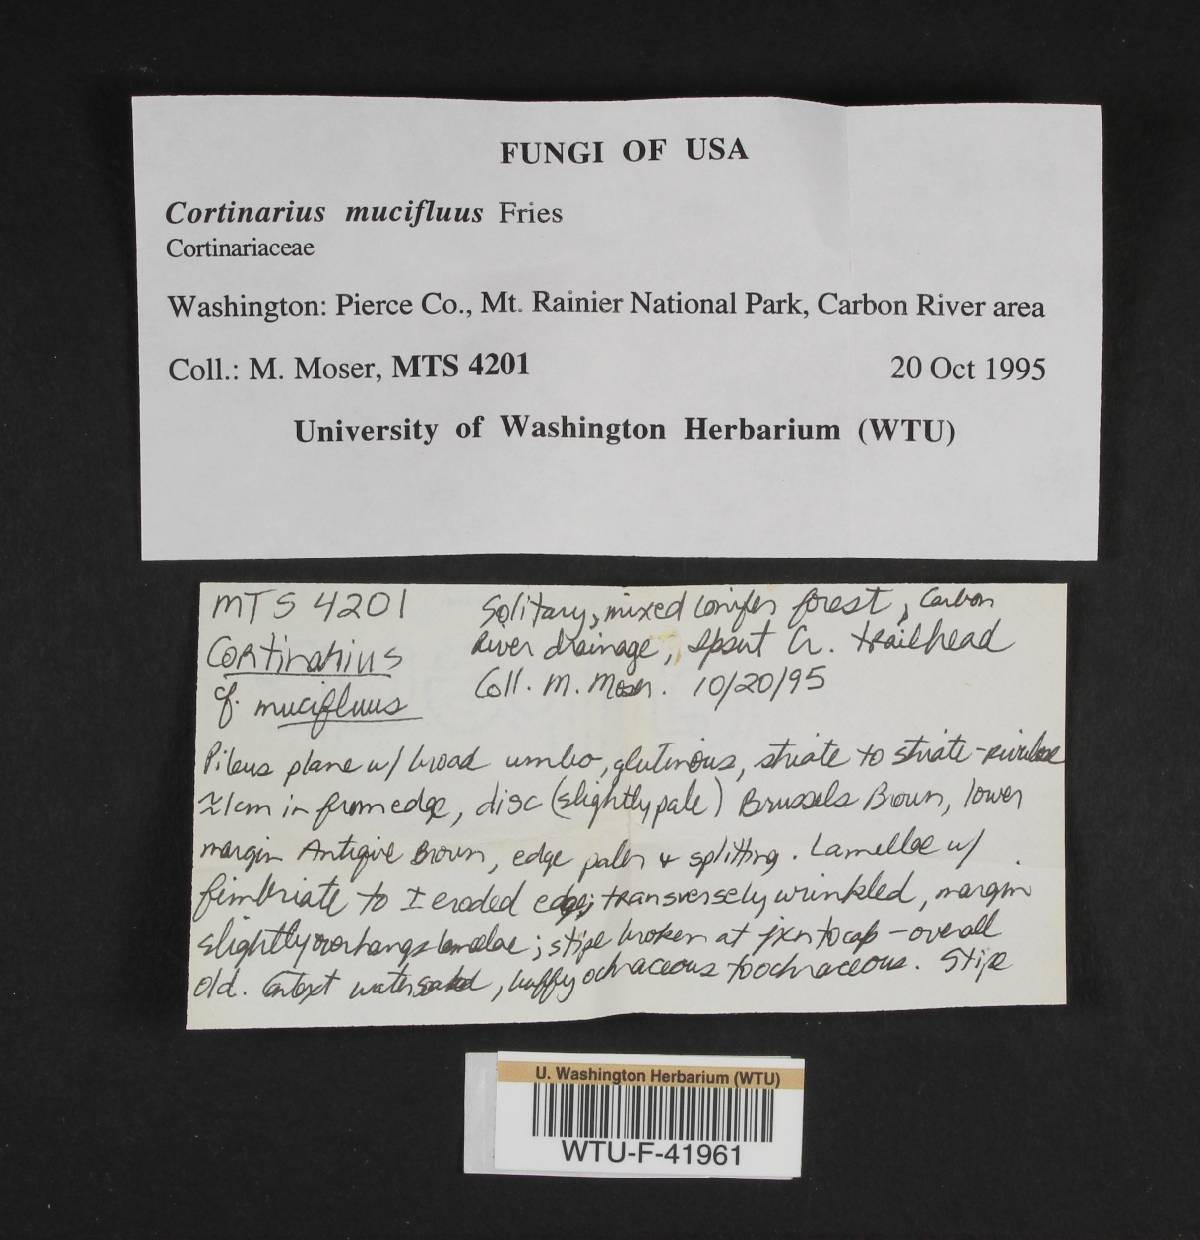 FUNGI OF USA
Cortinarius mucifluus Fries
Cortinariaceae
Washington: Pierce Co., Mt. Rainier National Park, Carbon River area
Coll.: M. Moser, MTS 4201 20 Oct 1995
University of Washington Herbarium (WTU)
MTS 4201
Cortinarius
cf. mucifluus
Solitary, mixed conifer forest, Carbon
River drainage, Ipsut Cr. trailhead
Coll. M. Moser. 10/20/95
Pileus plane w/ broad umbo, glutinous, striate to striate-rivulose
≈1cm in from edge, disc (slightly pale) Brussels Brown, lower
margin Antique Brown, edge paler & splitting. Lamellae w/
fimbriate to ± eroded edge; transversely wrinkled, margin
slightly overhangs lamellae; stipe broken at jxn to cap - overall
old. Context watersoaked, buffy ochraceous to ochraceous. Stipe
U. Washington Herbarium (WTU)
WTU-F-41961